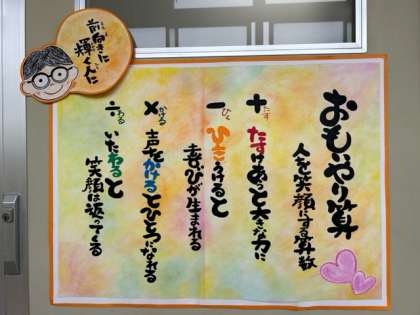 おもいやり算
人を笑顔にする算数
+ たす
たすけあうと大きな力に
− ひく
ひきうけると
喜びが生まれる
× かける
声をかけるとひとつになれる
÷ わる
いたわると
笑顔は返ってくる
前向きに
輝く人に